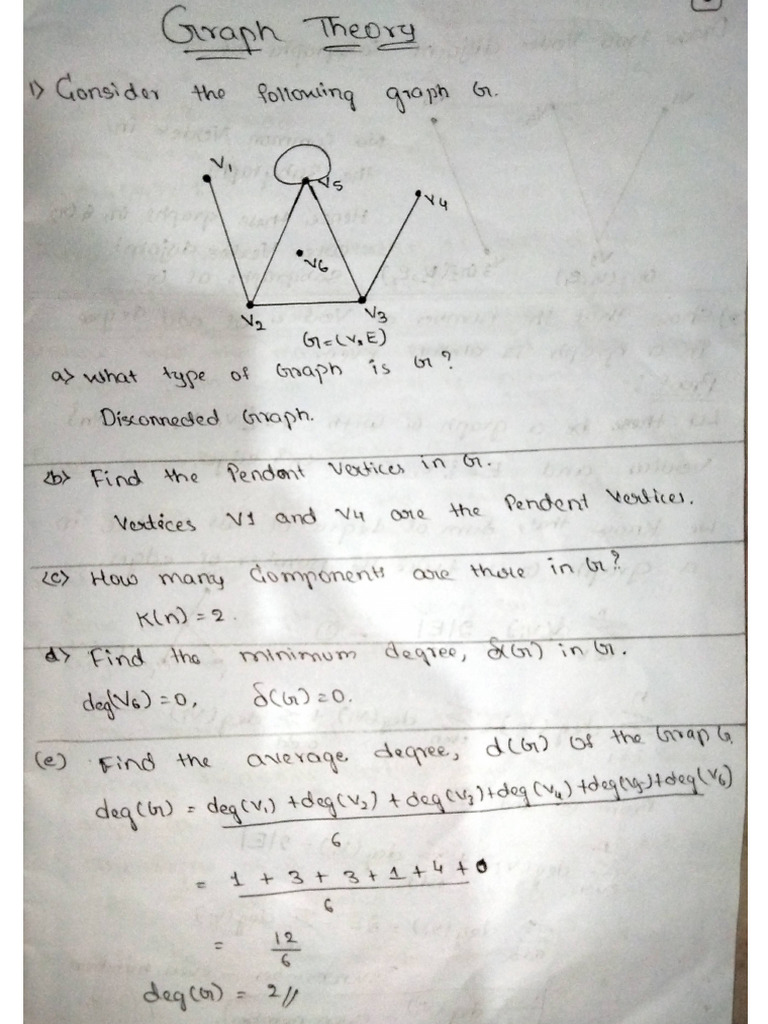 Graph Theory
1) Consider the following graph G.
V1
V5
V4
V6
V2
V3
G=(V,E)
a) What type of Graph is G?
Disconneded Graph.
(b) Find the Pendent Vertices in G.
Vertices V1 and V4 are the Pendent Vertices.
(c) How many Components are there in G?
K(n) = 2.
d) Find the minimum degree, δ(G) in G.
deg(V6) = 0, δ(G) = 0.
(e) Find the average degree, d(G) of the Grap G
deg(G) = deg(V1) + deg(V2) + deg(V3) + deg(V4) + deg(V5) + deg(V6)
6
= 1 + 3 + 3 + 1 + 4 + 0
6
= 12
6
deg(G) = 2//